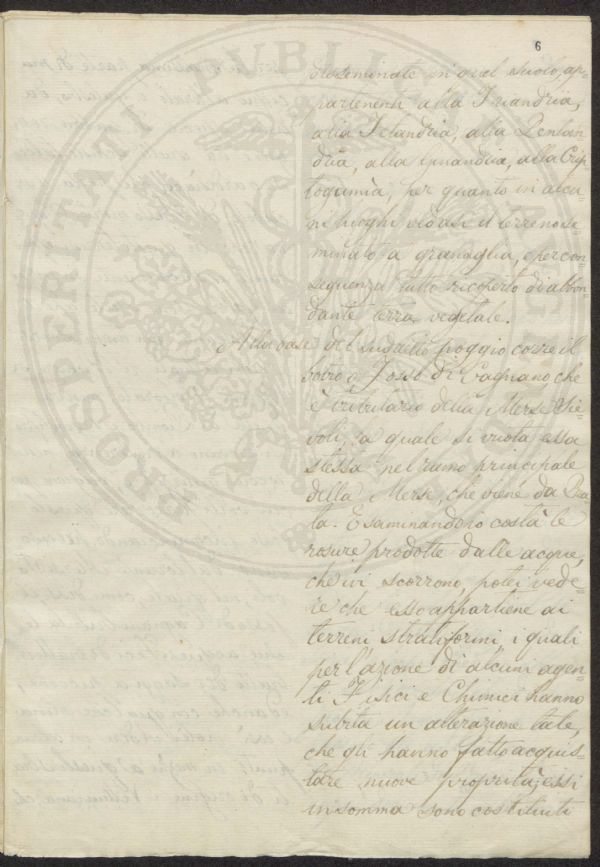 6
disseminate in quel suolo, ap=
partenenti alla Triandria,
alla Icandria, alla Pentan
dria, alla Ginandria, alla Crip
togamia, per quanto in alcu=
ni luoghi vedasi il terreno se
minato a granaglia, e per con
seguenza tutto ricoperto di abbon
dante terra vegetale.
Alla base del suddetto poggio corre il
Botro o Fosso di Gagnano che
è tributario della Merse Sie=
voli, la quale si vuota essa
stessa nel ramo principale
della Merse, che viene da Pra
ta. Esaminandolo costà le
rosure prodotte dalle acque,
che ivi scorrono, potei vede=
re che esso appartiene ai
terreni stratiformi i quali
per l'azione di alcuni agen
ti Fisici e Chimici hanno
subita un alterazione tale,
che gli hanno fatto acquis=
tare nuove proprietà; essi
in somma sono costituiti
PROSPERITATI PVBLICAE AVGENDAE